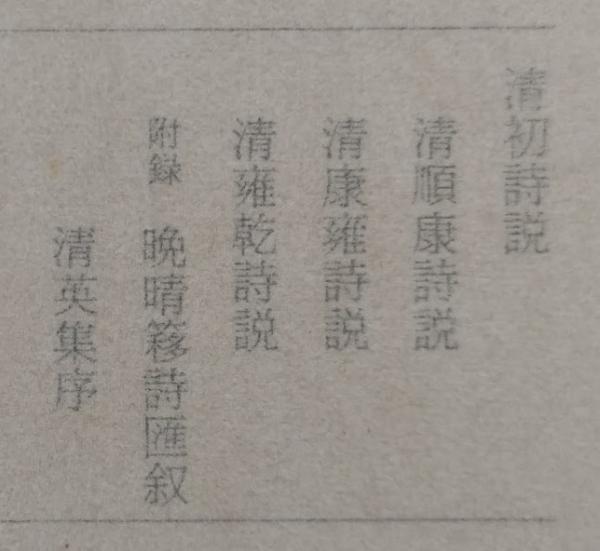 清初詩説
清順康詩説
清康雍詩説
清雍乾詩説
附録 晩晴簃詩匯叙
清英集序